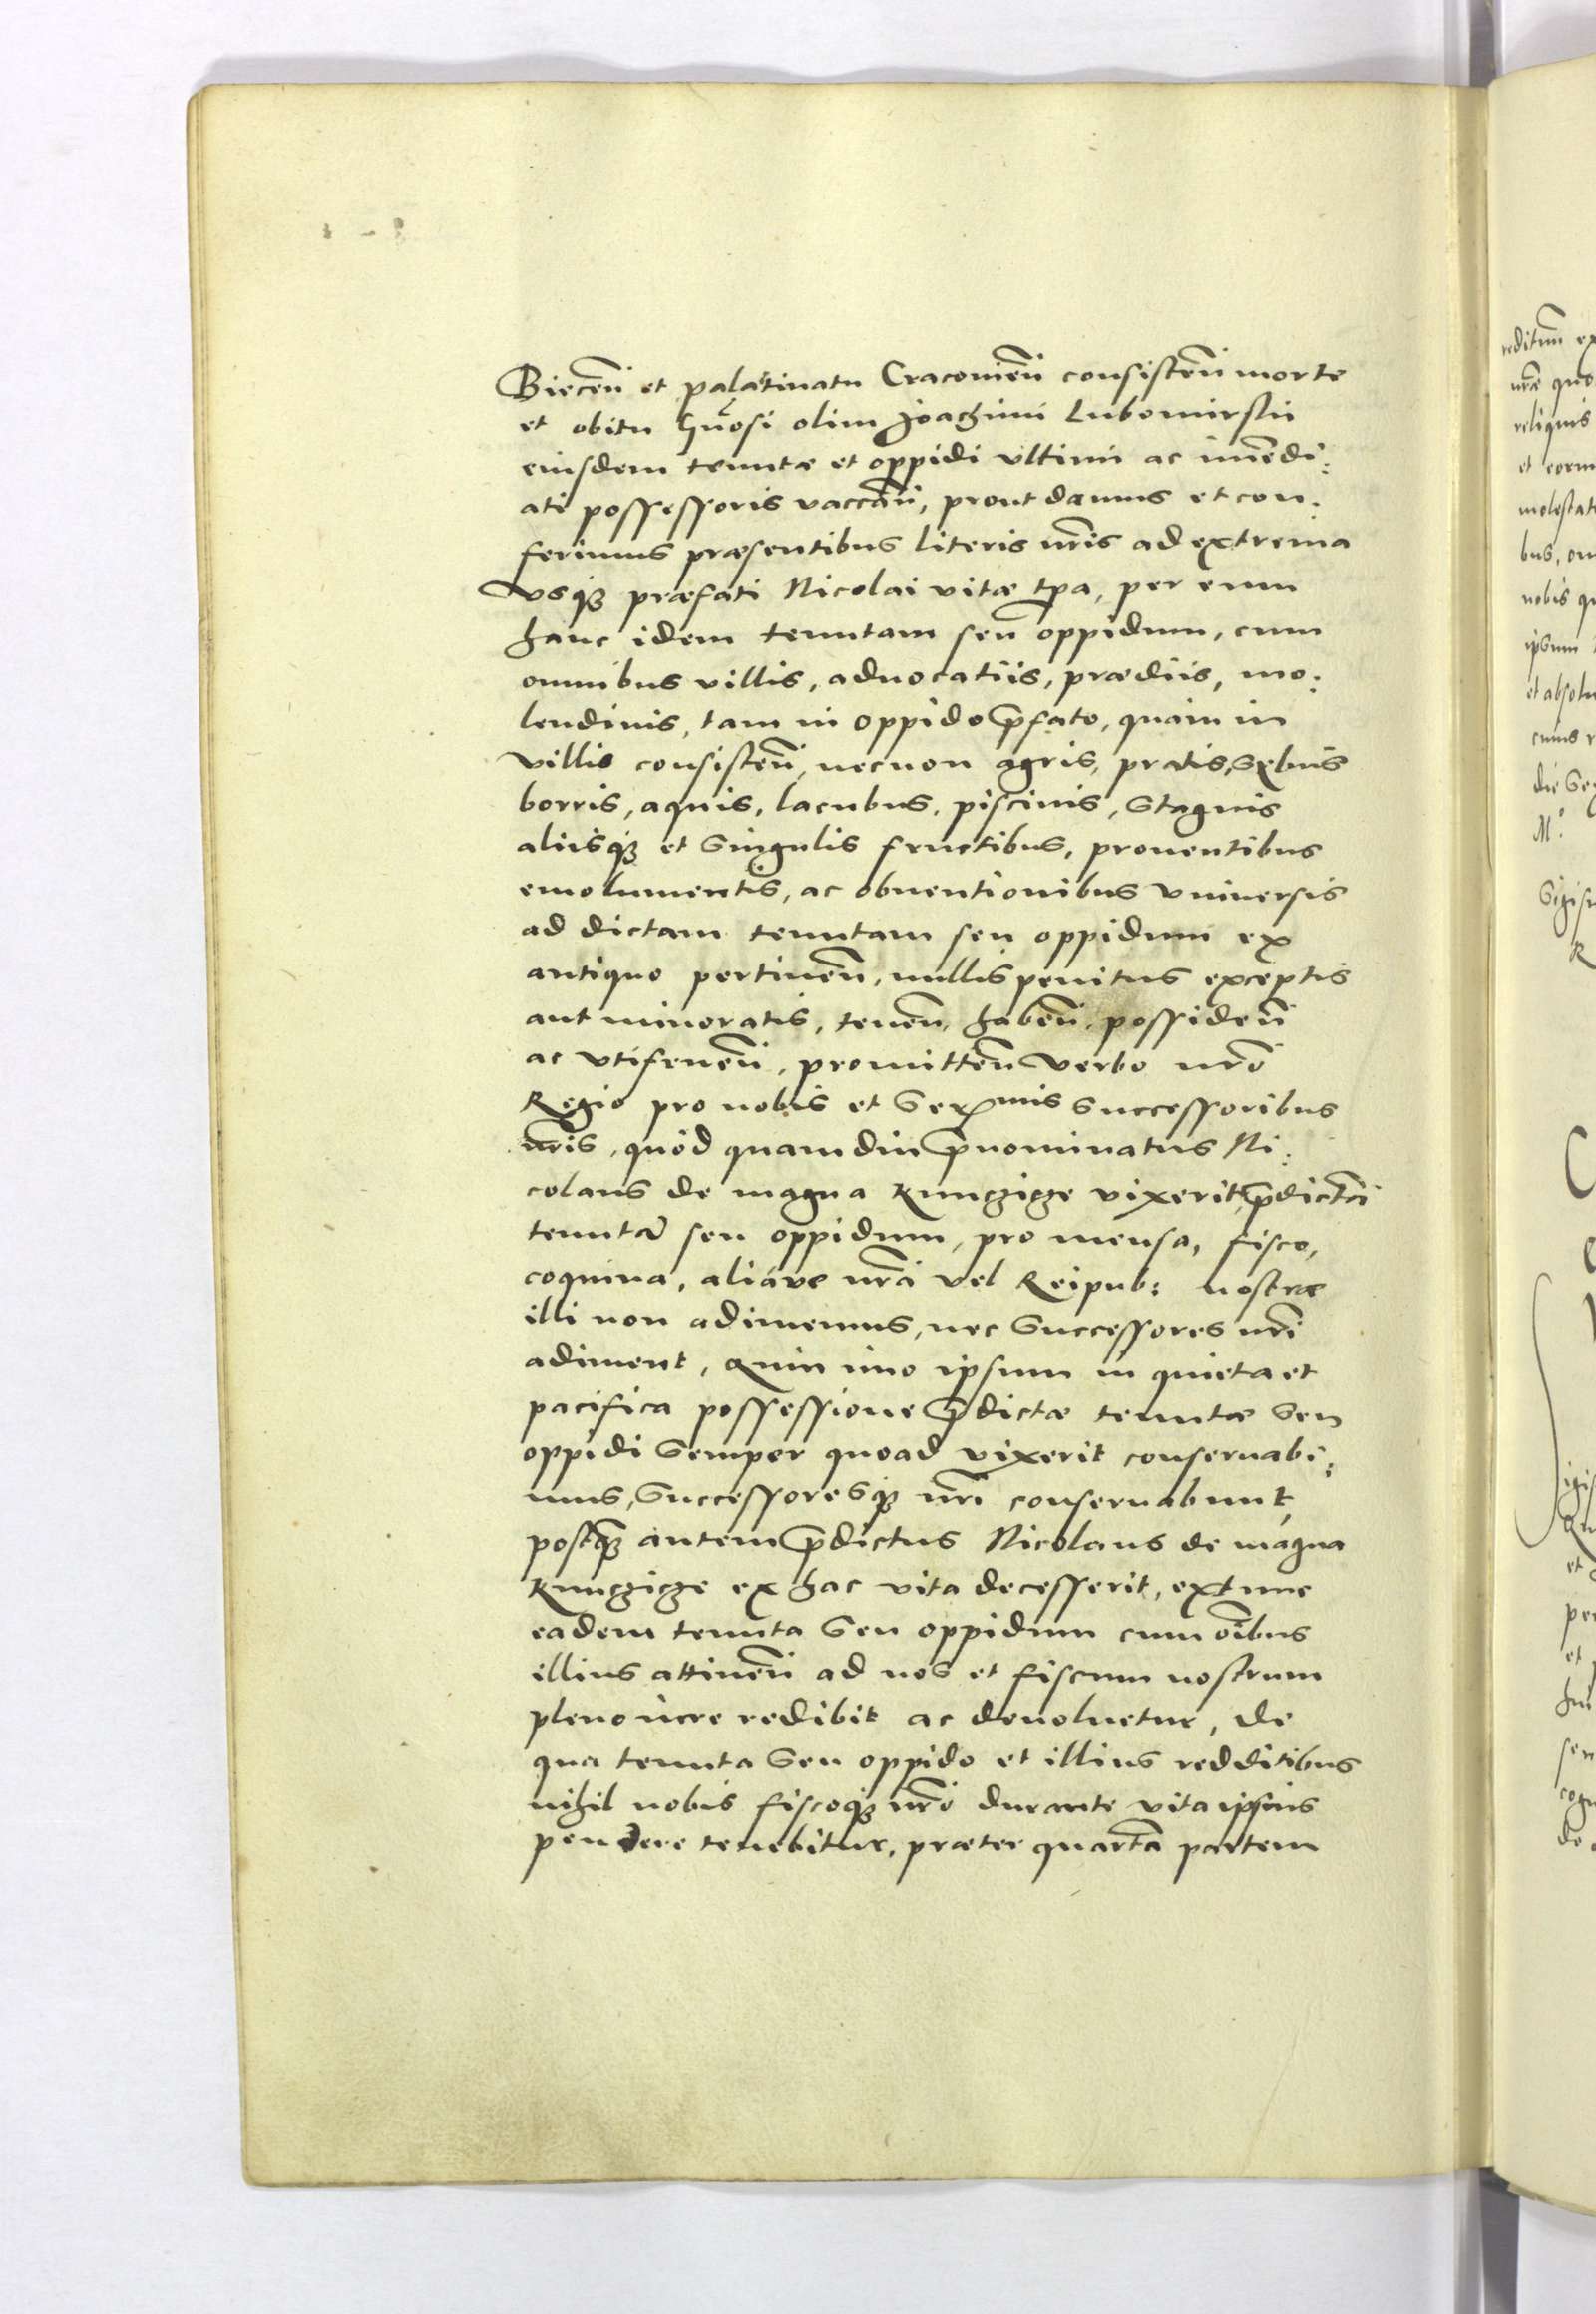 Biecen̄ et palatinatu Cracovien̄ consisten̄ morte
et obitu Gn̄osi olim Joachimi Lubomirskii
eiusdem tenutæ et oppidi vltimi ac im̄edi:
ati possessoris vaccan̄, prout damus et con:
ferimus præsentibus literis nr̄is ad extrema
vsqꝫ præfati Nicolai vitæ tp̄a, per eum
hanc idem tenutam seu oppidum, cum
omnibus villis, aduocatiis, prædiis, mo:
lendinis, tam in oppido p̄fato, quàm in
villis consisten̄, necnon agris, pratis,
borris, aquis, lacubus, piscinis, stagnis
aliisqꝫ et singulis fructibus, prouentibus
emolumentis, ac obuentionibus vniuersis
ad dictam tenutam seu oppidum ex
antiquo pertinen̄, nullis penitus exceptis
aut minoratis, tenen̄, haben̄, possiden̄
ac vtifruen̄, promitten̄ verbo nr̄o
Regio pro nobis et Ser^mis successoribus
nr̄is, quòd quamdiu p̄nominatus Ni:
colaus de magna Kunczicze vixerit, p̄dictā
tenutā seu oppidum, pro mensa, fisco,
coquina, aliáve nr̄a vel Reipub: nostræ
illi non adimemus, nec successores nr̄i
adiment, quin imo ipsum in quieta et
pacifica possessione p̄dictæ tenutæ seu
oppidi semper quoad vixerit conseruabi:
mus, successoresqꝫ nr̄i conseruabunt,
postqꝫ autem p̄dictus Nicolaus de magna
Kunczicze ex hac vita decesserit, extunc
eadem tenuta seu oppidum cum oībus
illius attinen̄ ad nos et fiscum nostrum
pleno iure redibit ac deuoluetur, de
qua tenuta seu oppido et illius redditibus
nihil nobis fiscoqꝫ nr̄o durante vita ipsius
pendere tenebitur, præter quartā partem